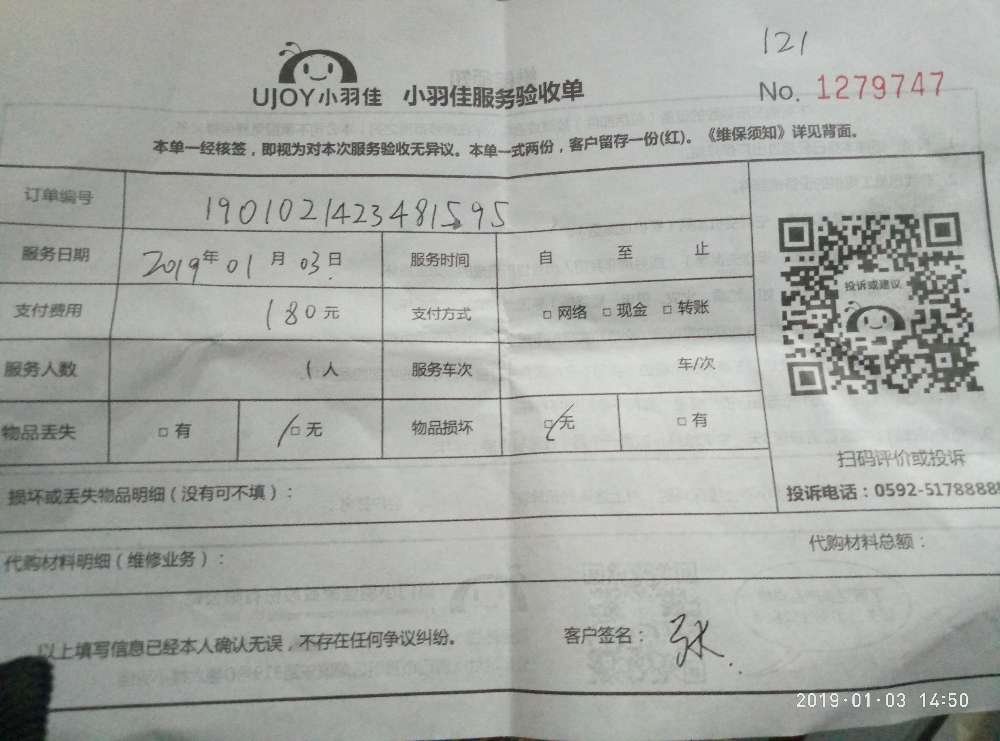 121
UJOY小羽佳 小羽佳服务验收单
No. 1279747
本单一经核签，即视为对本次服务验收无异议。本单一式两份，客户留存一份(红)。《维保须知》详见背面。
订单编号 1901021423481595
服务日期 2019年01月03日 服务时间 自 至 止
支付费用 180元 支付方式 □网络 □现金 □转账
投诉或建议
服务人数 1人 服务车次 车/次
物品丢失 □有 □无 物品损坏 □无 □有
扫码评价或投诉
损坏或丢失物品明细（没有可不填）：
投诉电话：0592-5178888
代购材料明细（维修业务）：
代购材料总额：
以上填写信息已经本人确认无误，不存在任何争议纠纷。
客户签名：张
2019-01-03 14:50